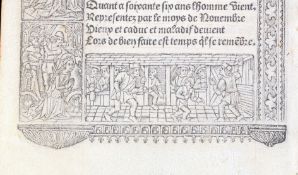 Quant a soixante six ans lhomme vient
Representez par le moys de Novembre
Vieux et caduc et maladif devient
Lors de bien faire est temps ql se remẽbre.